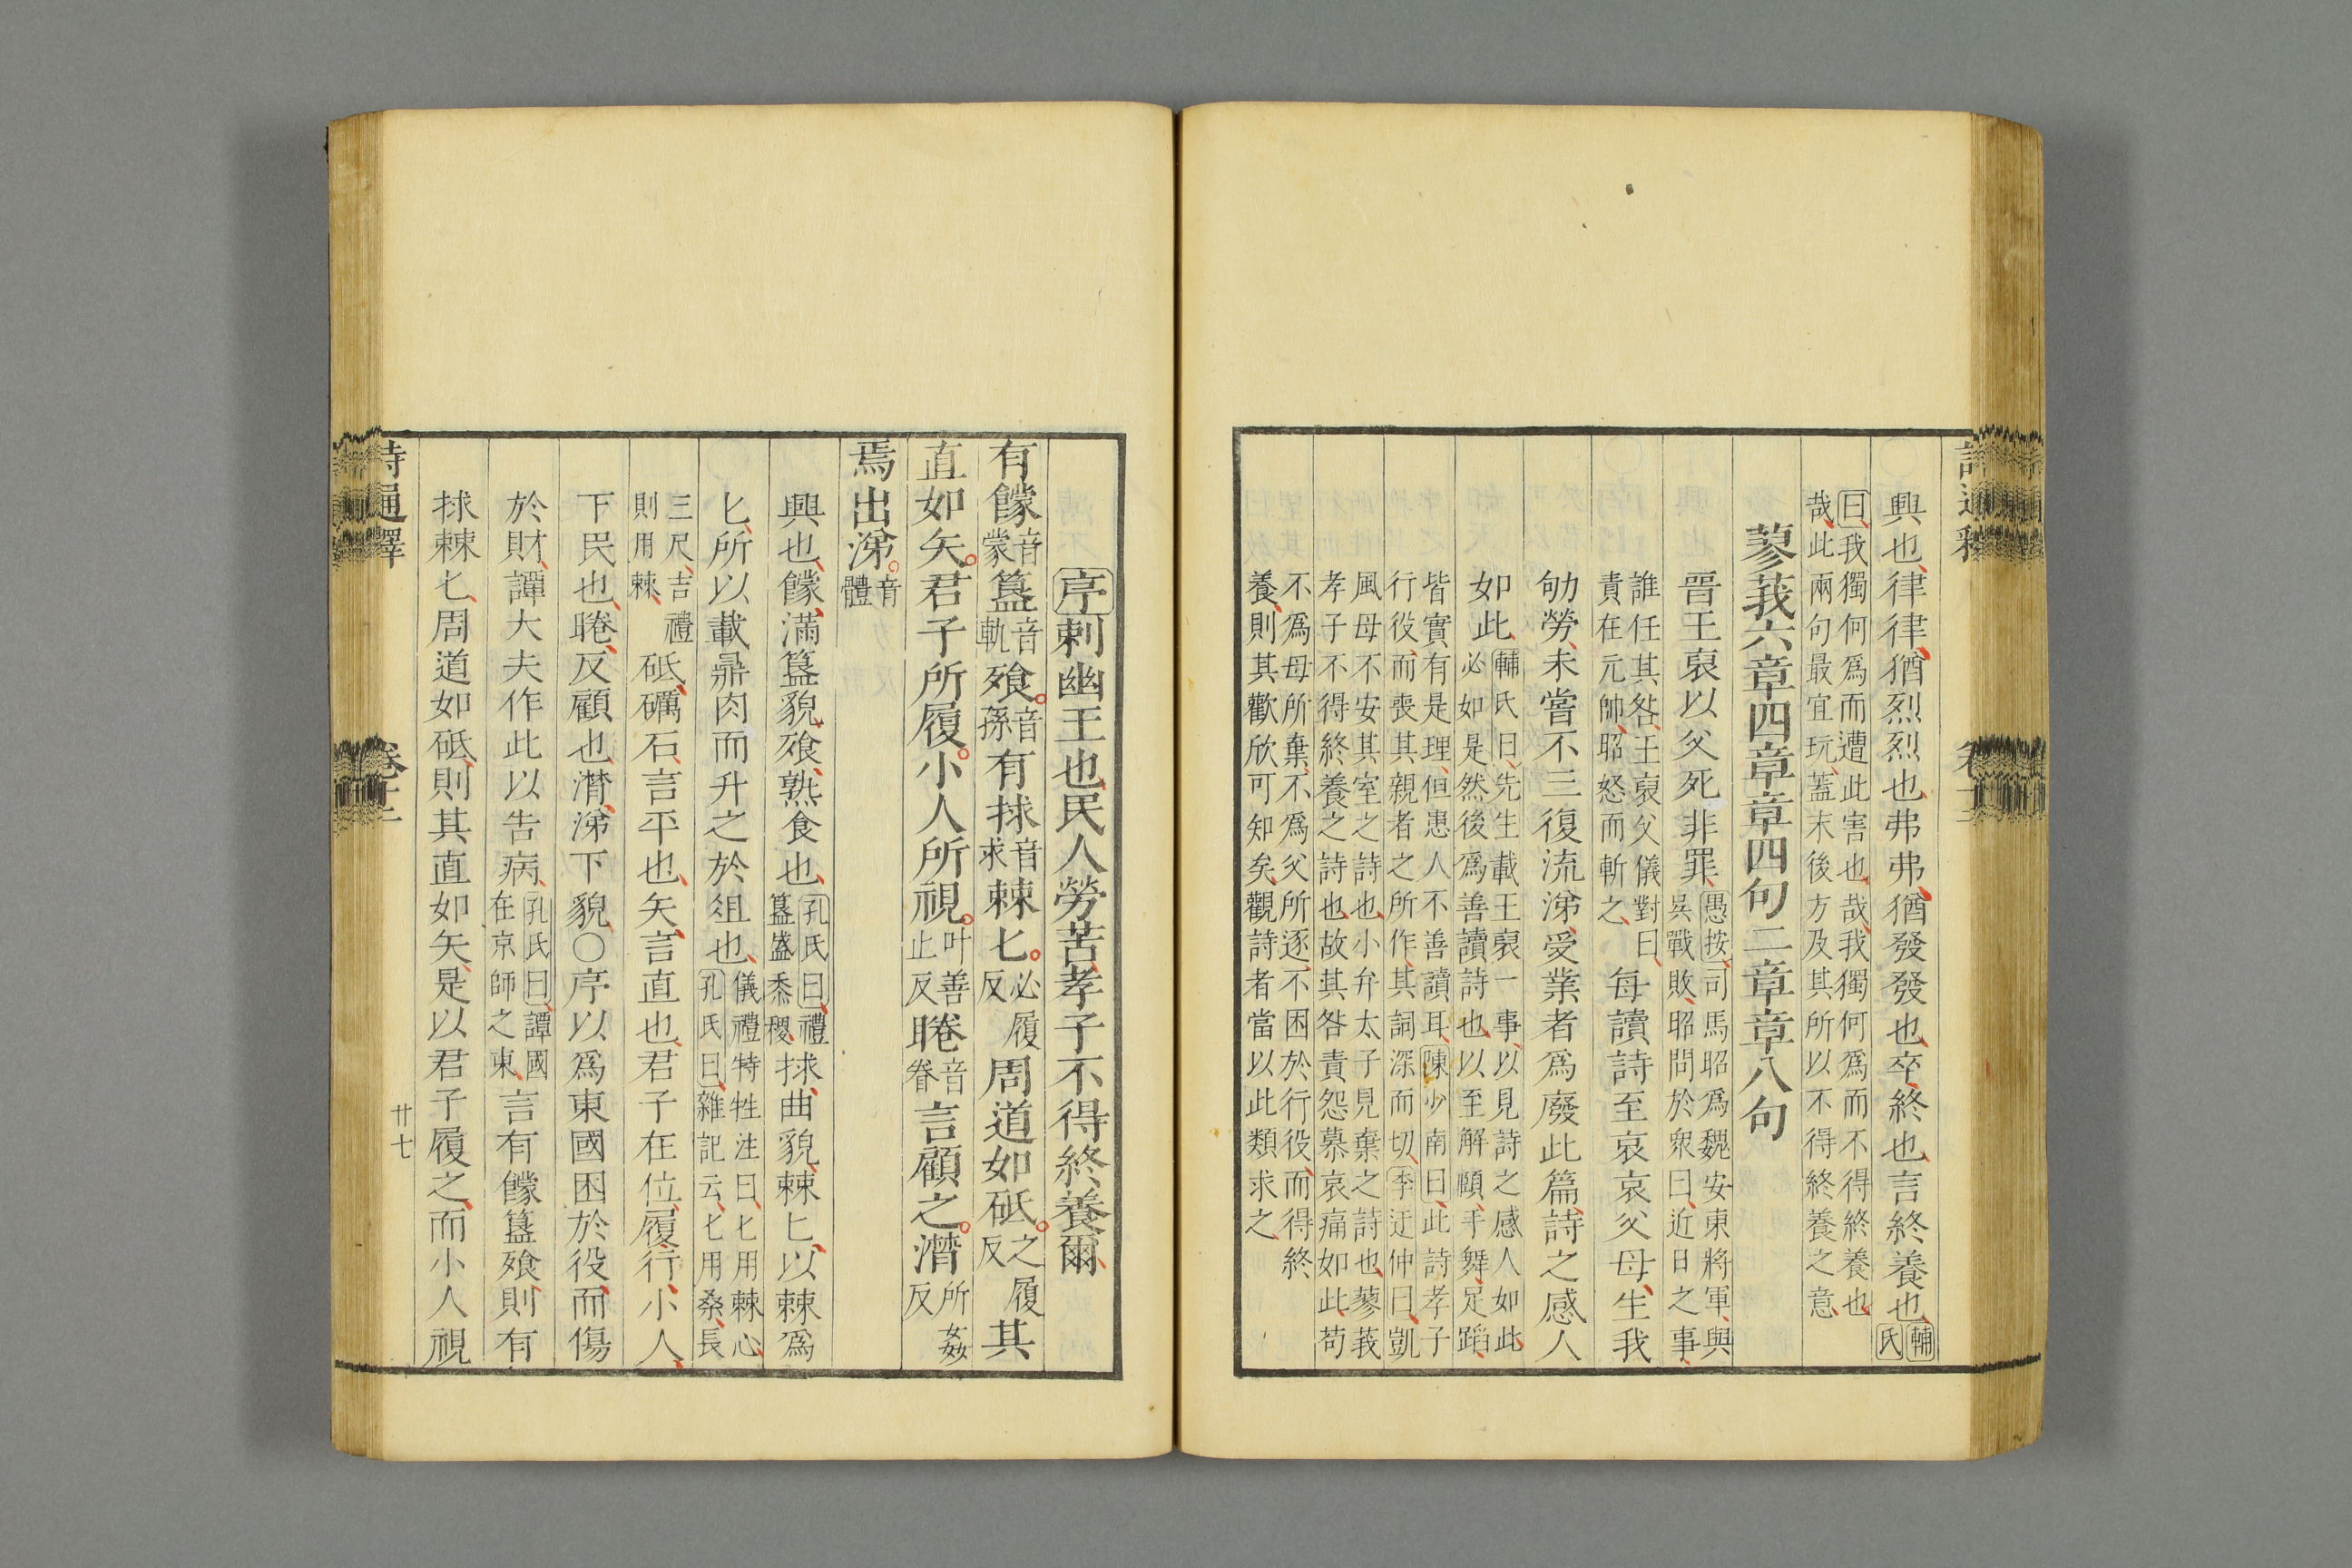 興也律律猶烈烈也弗弗猶發發也卒終也言終養也輔氏
曰我獨何爲而遭此害也哉我獨何爲而不得終養也
哉此兩句最宜玩蓋末後方及其所以不得終養之意
蓼莪六章四章章四句二章章八句
晉王裒以父死非罪愚按司馬昭爲魏安東將軍與吳戰敗昭問於衆曰近日之事
誰任其咎王裒父儀對曰責在元帥昭怒而斬之每讀詩至哀哀父母生我
劬勞未嘗不三復流涕受業者爲廢此篇詩之感人
如此輔氏曰先生載王裒一事以見詩之感人如此必如是然後爲善讀詩也以至解頤手舞足蹈
皆實有是理但患人不善讀耳陳少南曰此詩孝子
行役而喪其親者之所作其詞深而切李迂仲曰凱
風母不安其室之詩也小弁太子見棄之詩也蓼莪
孝子不得終養之詩也故其咎責怨慕哀痛如此苟
不爲母所棄不爲父所逐不困於行役而得終
養則其歡欣可知矣觀詩者當以此類求之
序刺幽王也民人勞苦孝子不得終養爾
有饛音蒙簋音軌飧音孫有捄音求棘匕必履反周道如砥之履反其
直如矢君子所履小人所視叶善止反睠音眷言顧之潸所姦反
焉出涕音體
興也饛滿簋貌飧熟食也孔氏曰禮簋盛黍稷捄曲貌棘匕以棘爲
匕所以載鼎肉而升之於俎也儀禮特牲注曰匕用棘心孔氏曰雜記云匕用桑長
三尺吉禮則用棘砥礪石言平也矢言直也君子在位履行小人
下民也睠反顧也潸涕下貌○序以爲東國困於役而傷
於財譚大夫作此以告病孔氏曰譚國在京師之東言有饛簋飧則有
捄棘匕周道如砥則其直如矢是以君子履之而小人視
詩通釋 卷十二 廿七